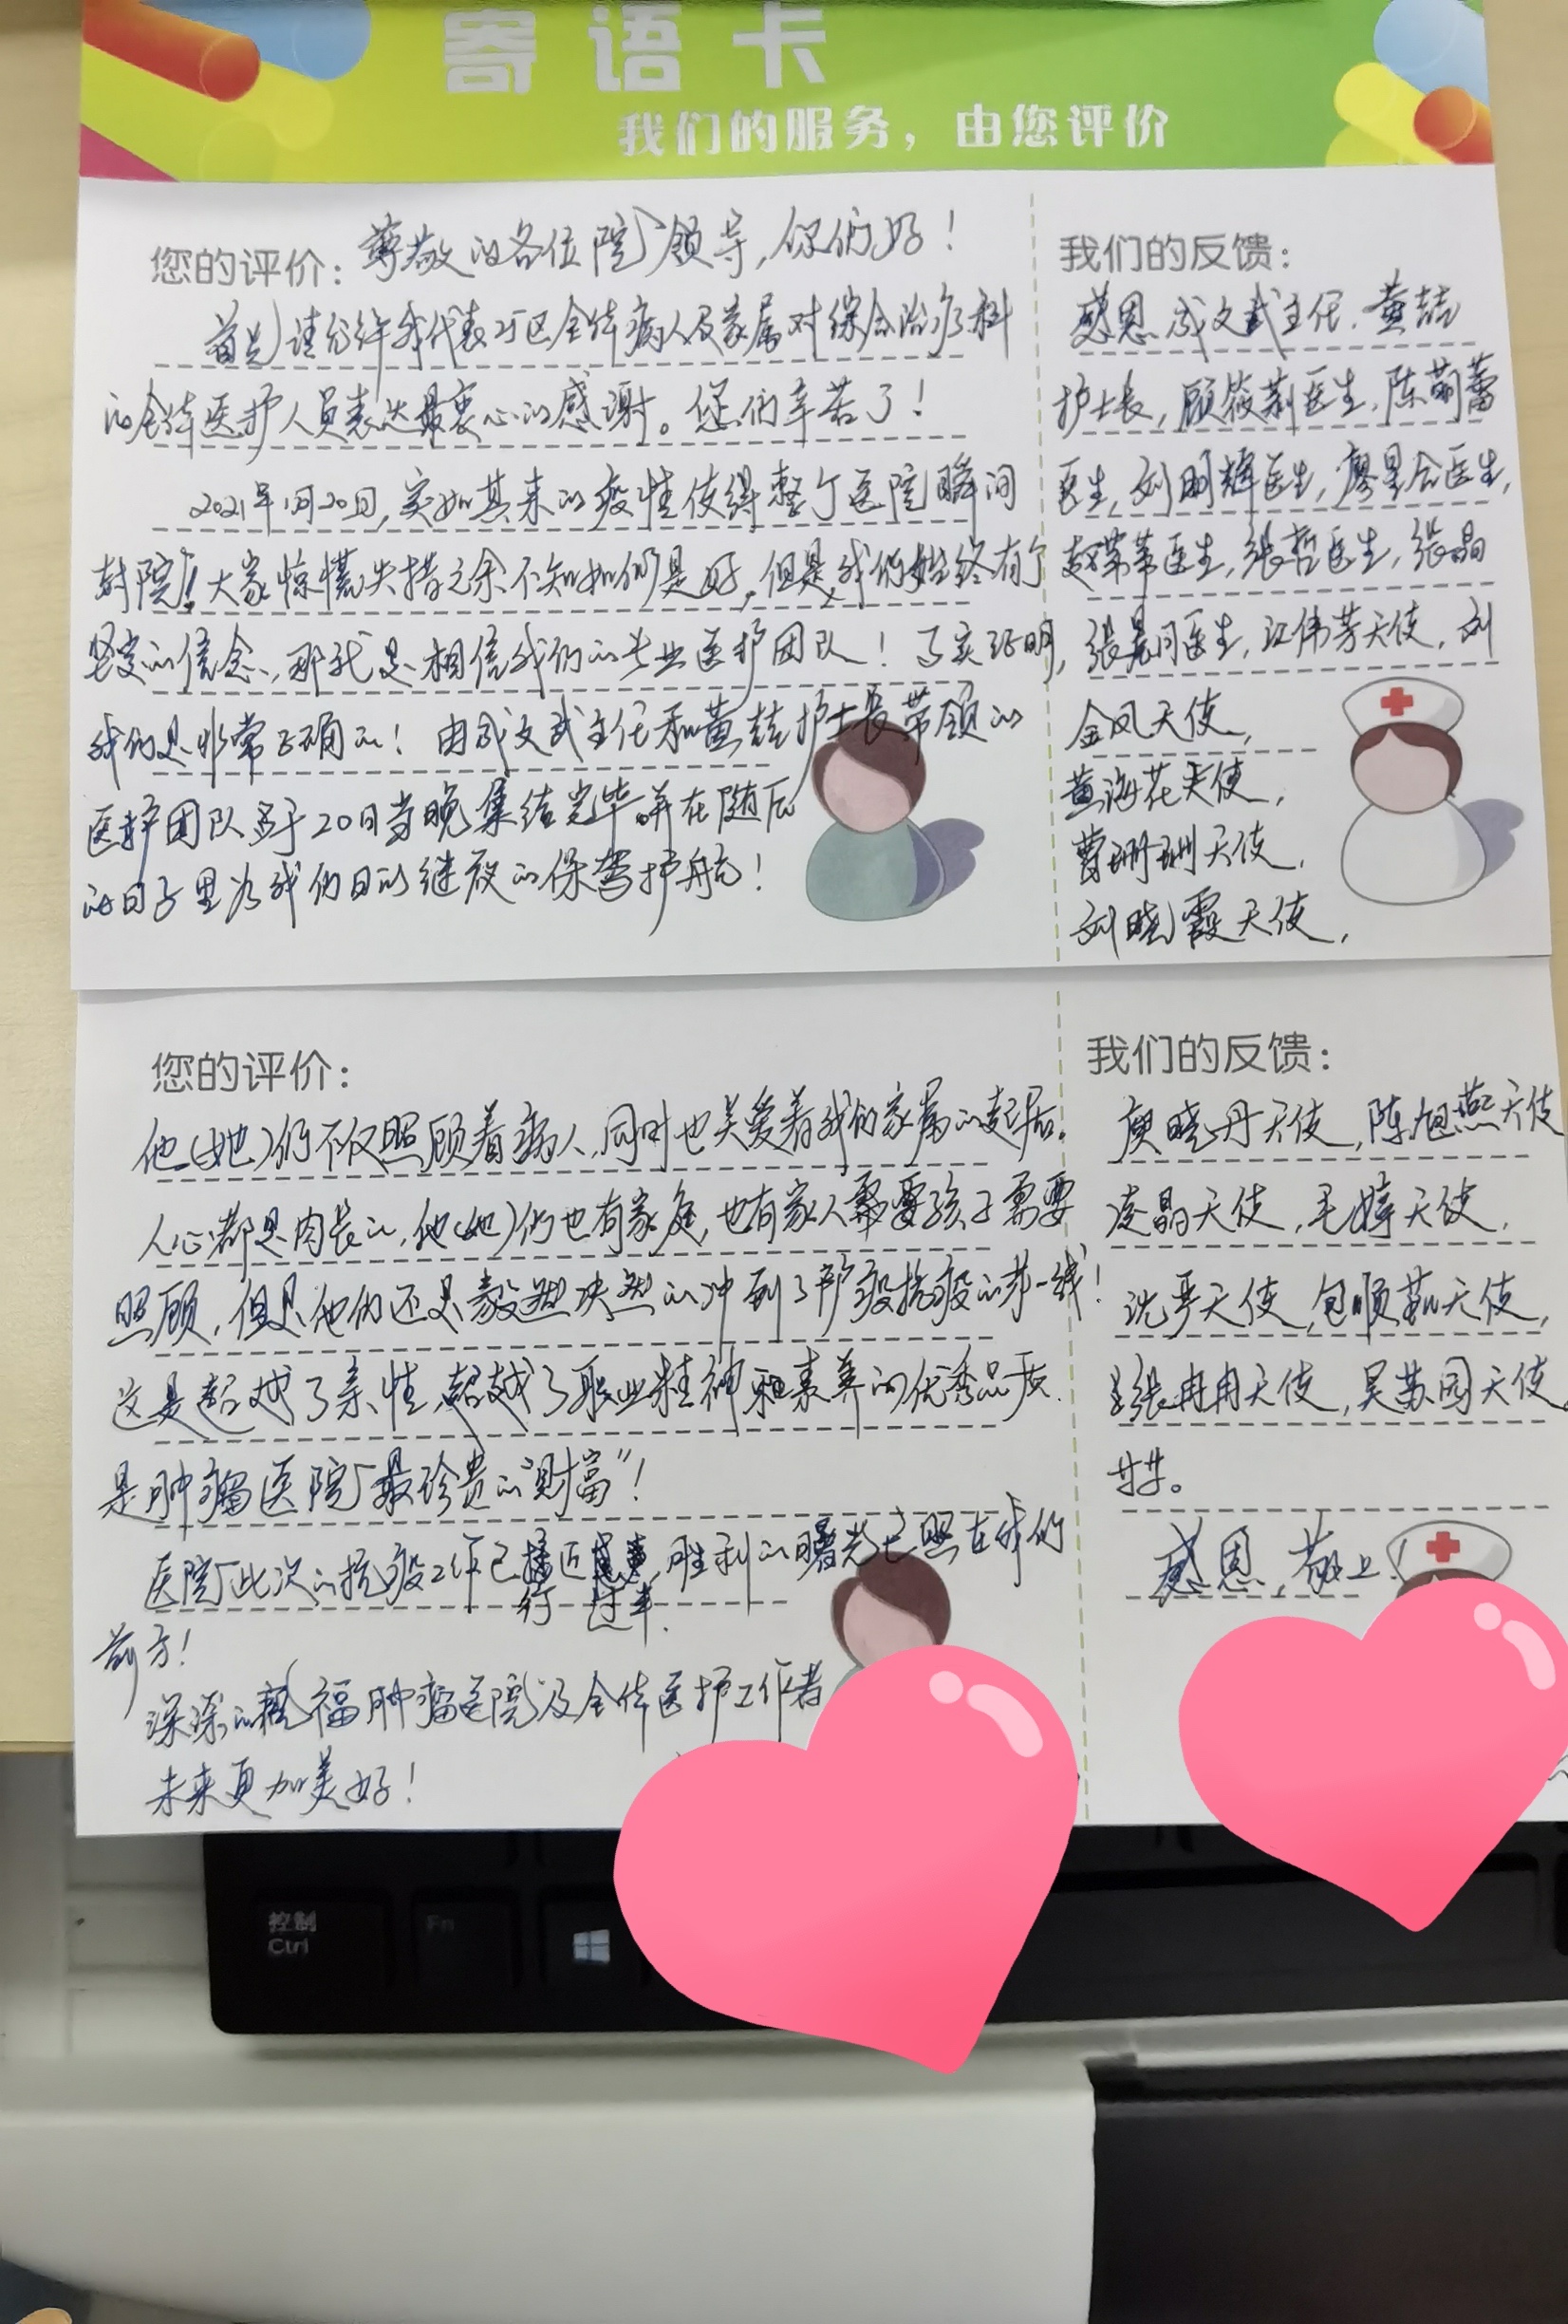 寄语卡
我们的服务，由您评价
您的评价：尊敬的各位院领导，你们好！
首先请允许我代表21区全体病人及家属对综合治疗科
的全体医护人员表达最衷心的感谢。您们辛苦了！
2021年1月20日，突如其来的疫情使得整个医院瞬间
封院！大家惊慌失措之余不知如何是好，但是我们始终有个
坚定的信念，那就是相信我们的专业医护团队！事实证明，
我们是非常正确的！由成文武主任和黄喆护士长带领的
医护团队就于20日当晚集结完毕并在随后
的日子里为我们日以继夜的保驾护航！
我们的反馈：
感恩成文武主任，黄喆
护士长，顾筱莉医生，陈萌蕾
医生，刘明辉医生，廖星合医生，
赵芾芾医生，张哲医生，张晶
张晨同医生，江伟芳天使，刘
金凤天使，
黄海花天使，
曹珊珊天使，
刘晓霞天使，
您的评价：
他（她）们不仅照顾着病人，同时也关爱着我们家属的起居。
人心都是肉长的，他（她）们也有家庭，也有家人需要孩子需要
照顾，但是他们还是毅然决然的冲到了防疫抗疫的第一线！
这是超越了亲情，超越了职业精神和素养的优秀品质
是肿瘤医院最珍贵的“财富”！
医院此次的抗疫工作已行近过半，胜利的曙光已照在我们
前方！
深深的祝福肿瘤医院及全体医护工作者
未来更加美好！
我们的反馈：
庾晓丹天使，陈旭燕天使
凌晶天使，毛婷天使，
沈严天使，包顺茹天使，
张冉冉天使，吴苏园天使
等。
感恩，敬上！
控制
Ctrl
Fn